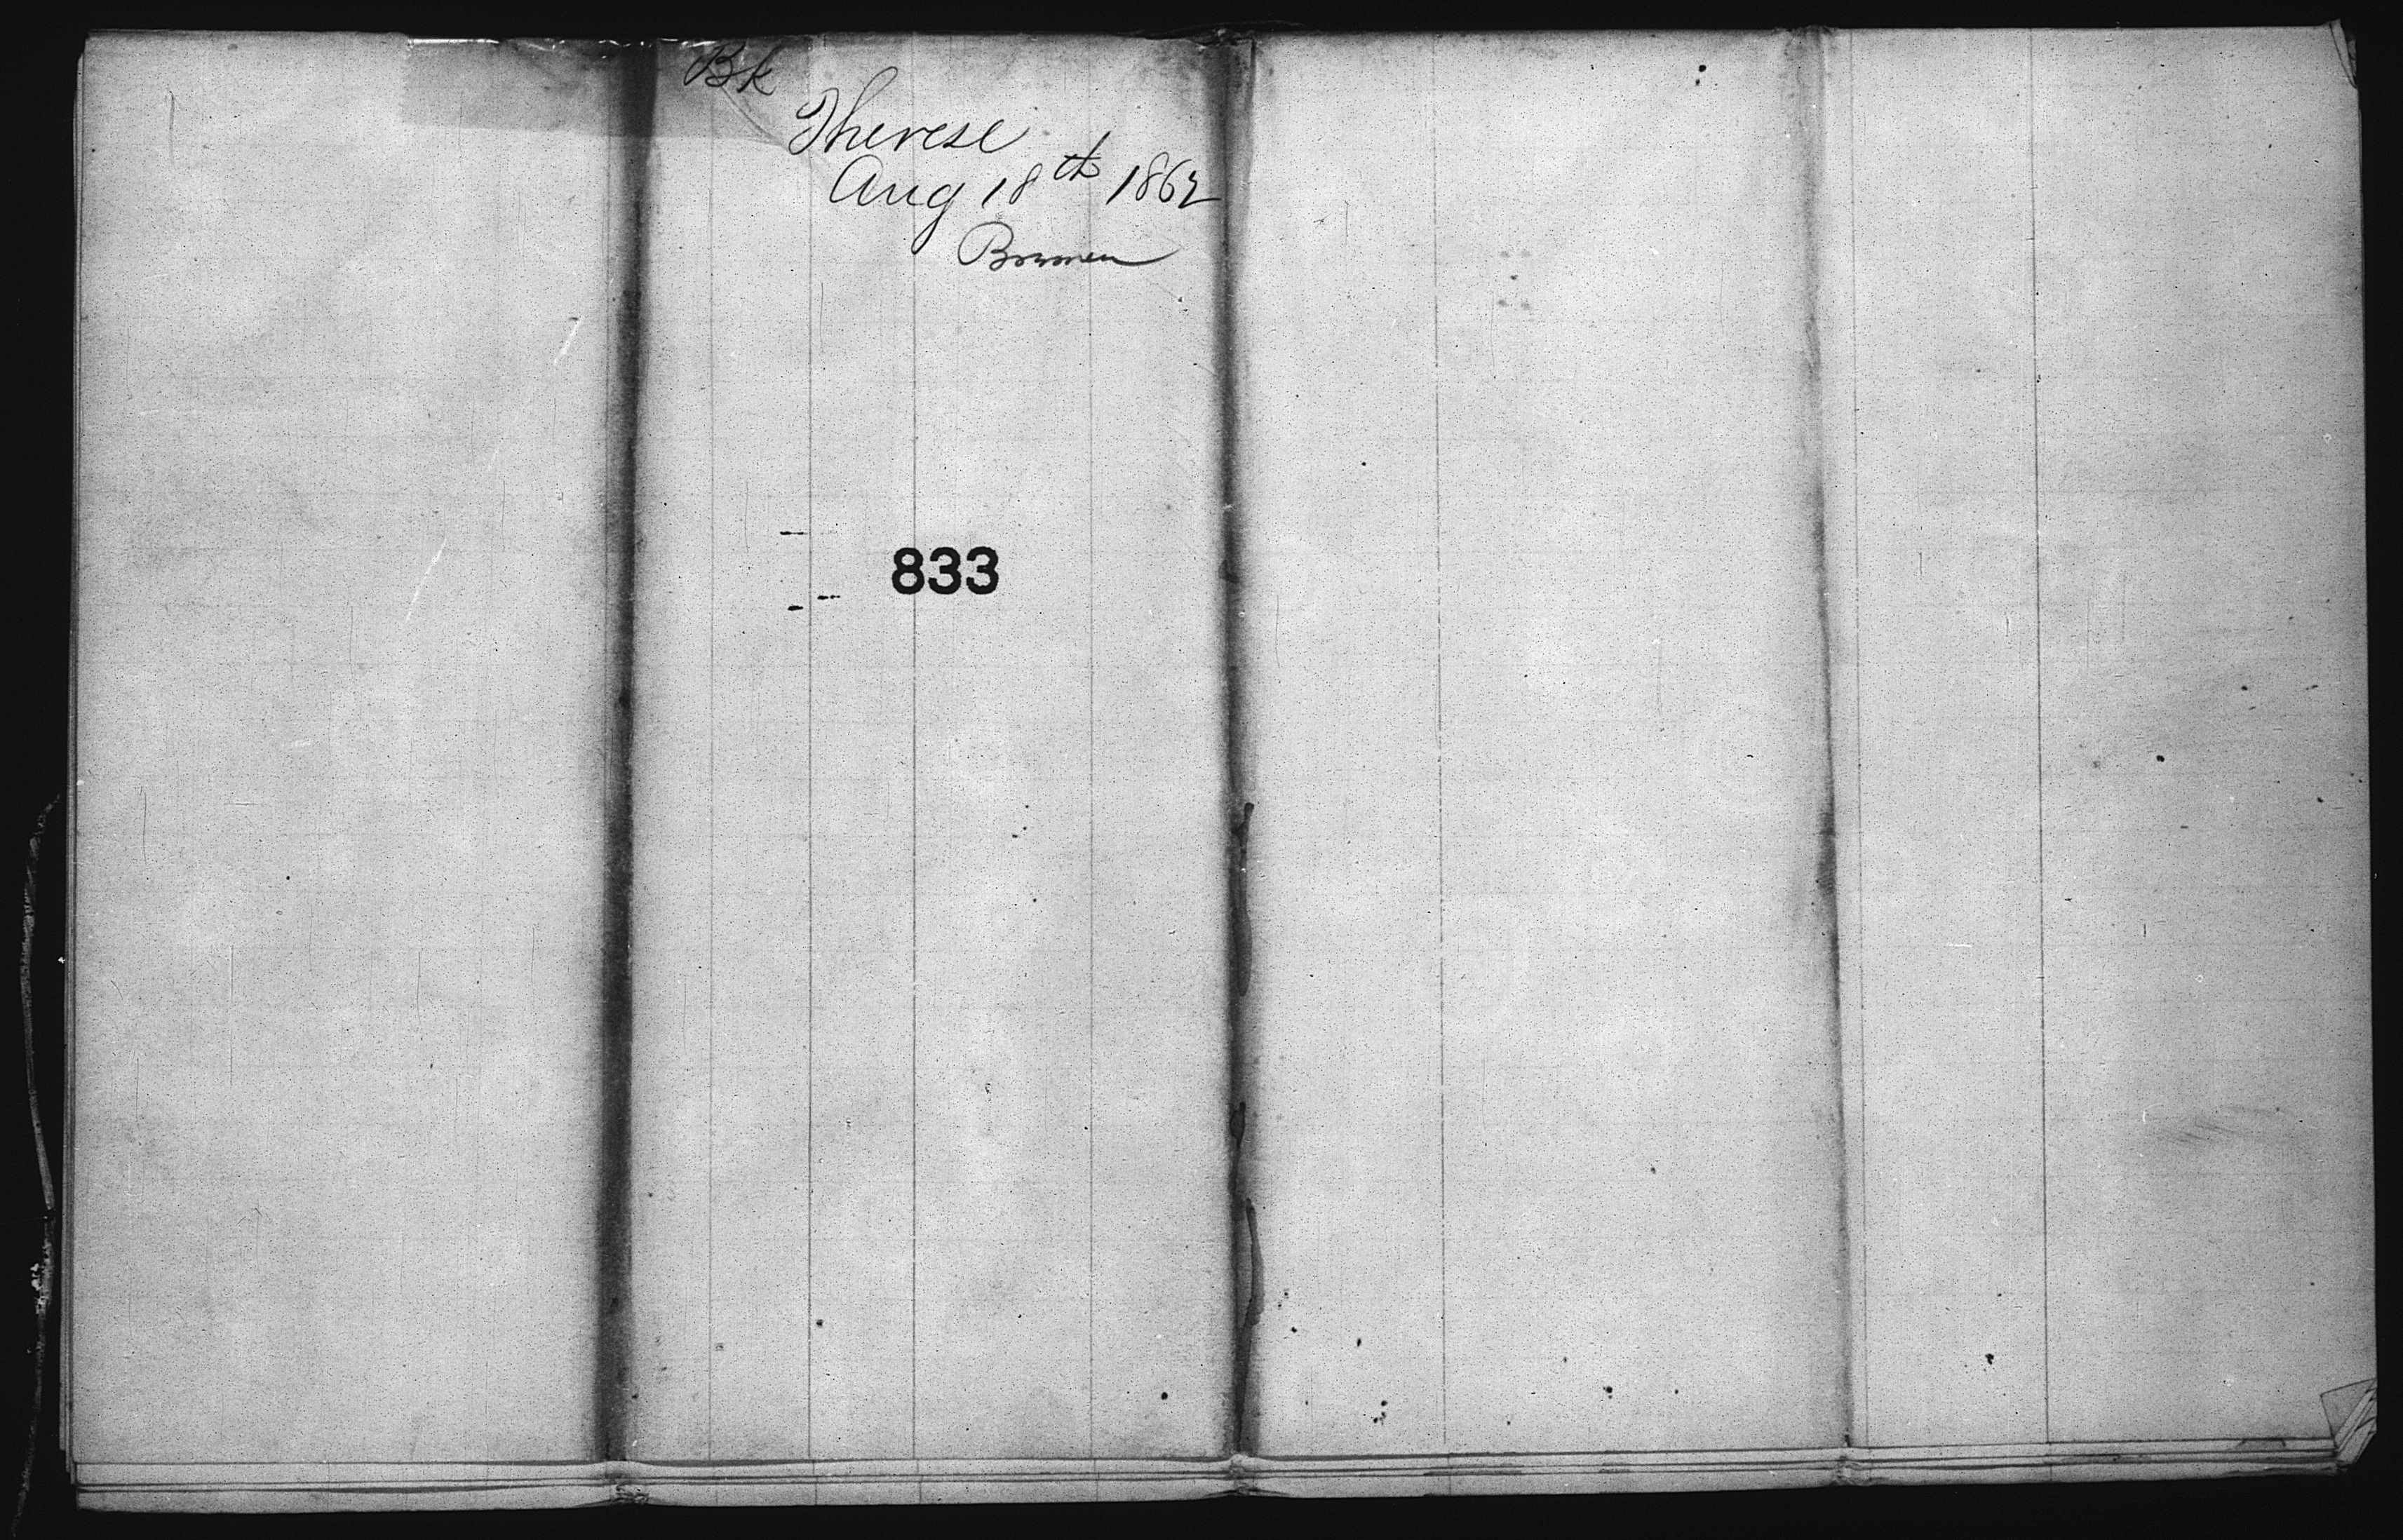 Bk
Therese
Aug 18th 1862
Bremen
833